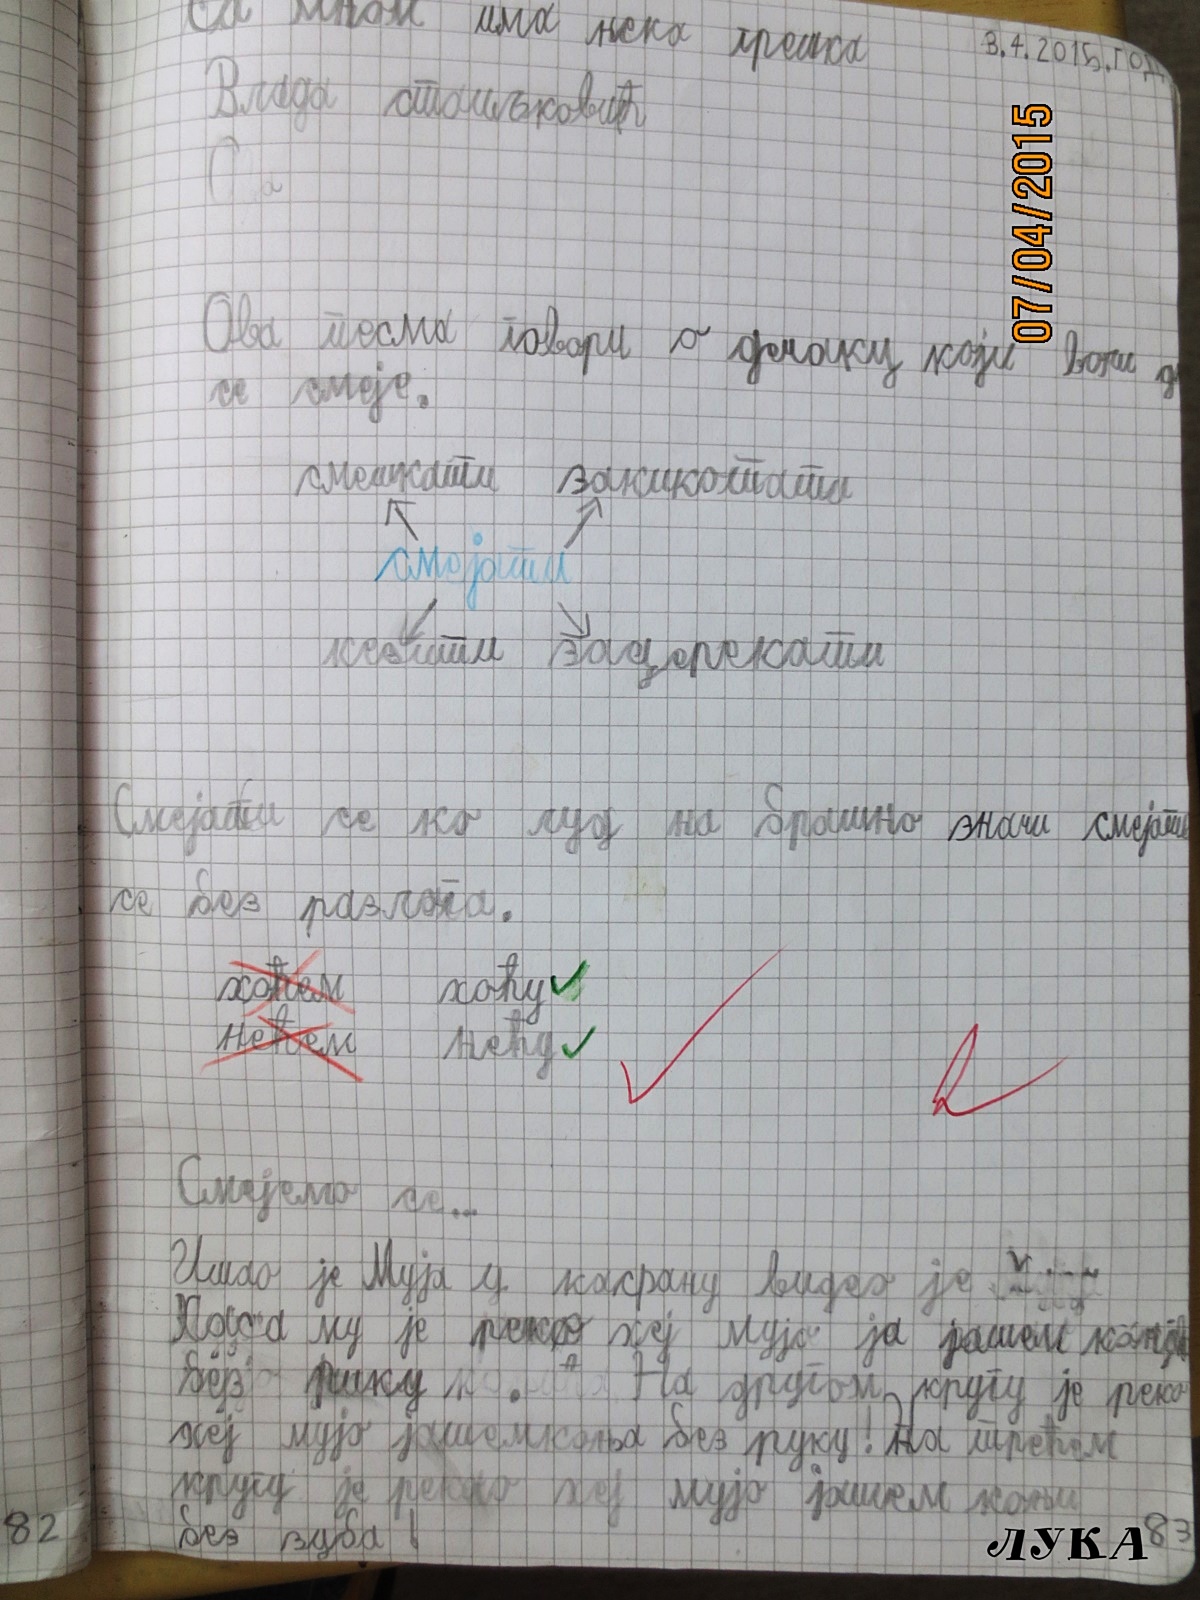 Са мном има нека грешка 3.4.2015.год
Влада стошљковић
07/04/2015
Ова песма говори о дечаку који воли д
се смеје.
смешкати закикотати
смејати
кезити зацерекати
Смејати се ко луд на брашно значи смејати
се без разлога.
хоћем хоћу
нећем нећу
Смејемо се...
Ишао је Муја у видео је
му је реко хеј мујо ја јашем
без руку На другом кругу је реко
хеј мујо јашемкоња без руку! На трећем
кругу је реко хеј мујо јашем коњи
без зуба!
82 ЛУКА 83